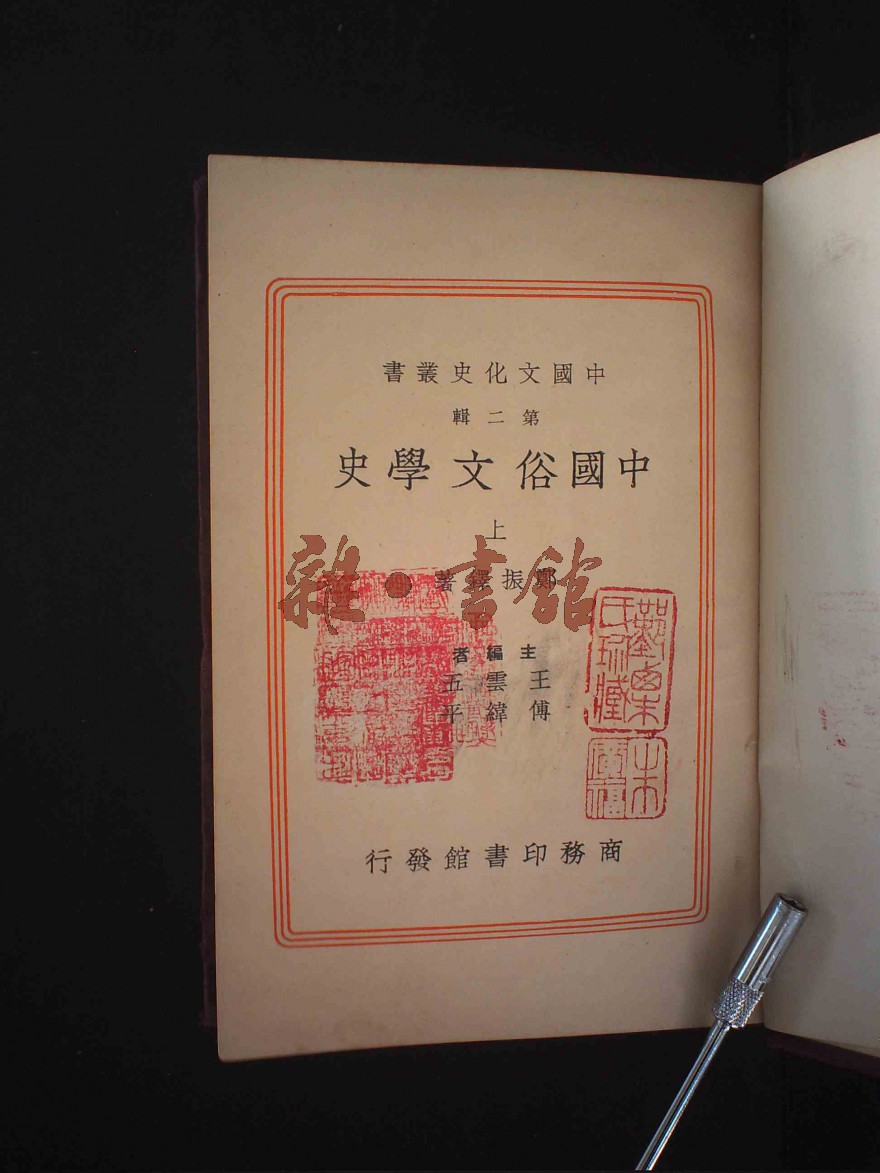 中國文化史叢書
第二輯
中國俗文學史
上
鄭振鐸著
主編者
王雲五
傅緯平
商務印書館發行
雜·書館